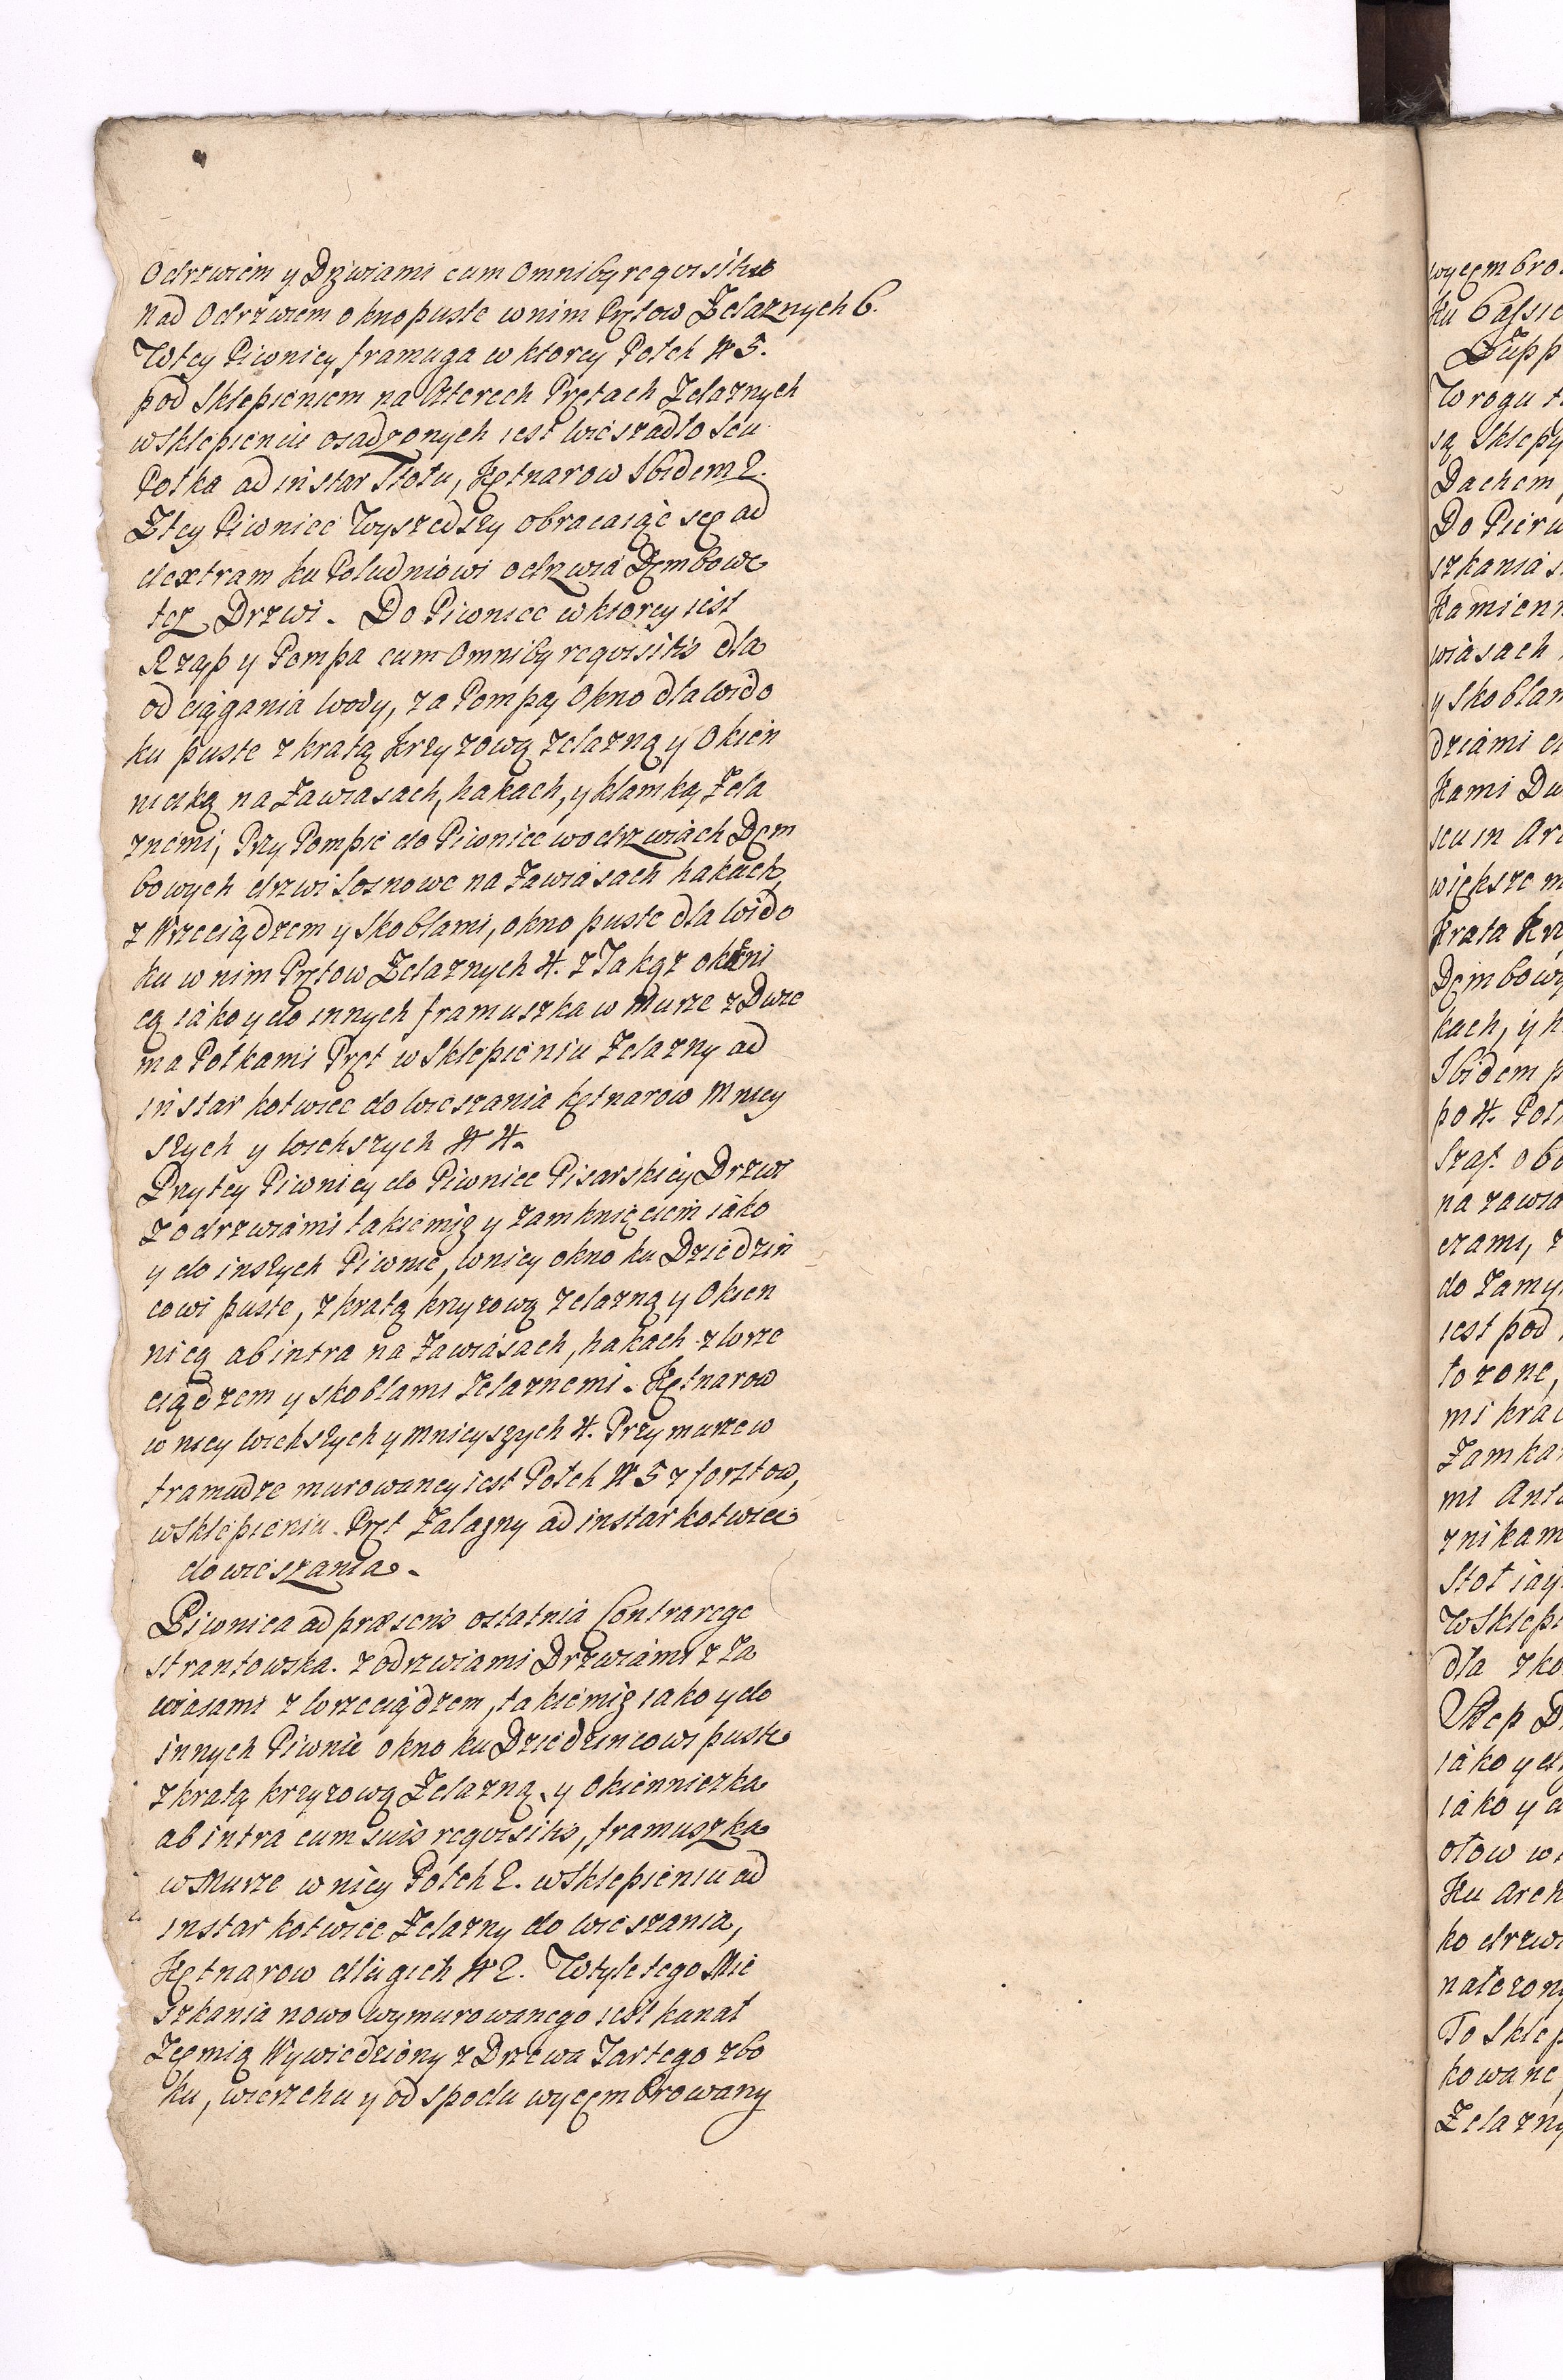 Odrzwiem y Drzwiami cum omniby reqvisitis
nad Odrzwiem okno puste w nim Prętow Zelaznych 6.
W tey Piwnicy framuga w ktorey Połek N 5.
pod Sklepieniem na Cterech Prętach Zelaznych
w Sklepieniu osadzonych iest Wieszadło Seu
Połka ad instar Stołu, Kętnarow Ibidem 2.
Z tey Piwnice Wyszedszy obracaiąc się ad
dextram ku Południowi odrzwia Dembowe
tez Drzwi. Do Piwnice w ktorey iest
Rząp y Pompa cum Omniby reqvisitis dla
od ciągania Wody, za Pompą Okno dla Wido
ku puste z kratą krzyzową zelazną y Okien
niczką na Zawiasach, hakach, y klamką Zela
znemi, Przy Pompie do Piwnice w odrzwiach Dem
bowych drzwi Sosnowe na Zawiasach hakach,
z Wrzeciądzem y Skoblami, okno puste dla Wido
ku w nim Prętow Zelaznych 4. z Takąz okieni
cą iako y do innych framuszka w Murze z Dwie
ma Połkami Pręt w Sklepieniu Zelazny ad
instar kotwice do Wieszania kętnarow Mniey
szych y Wiekszych N 4.
Przy tey Piwnicy do Piwnice Pisarskiey Drzwi
z odrzwiami takiemiz y zamknięciem iako
y do inszych Piwnic, W nicy okno ku Dziedziń
cowi puste, z kratą krzyzową zelazną y Okien
nicą ab intra na Zawiasach, hakach z Wrze
ciądzem y skoblami Zelaznemi. Kętnarow
w niey Wiekszych y Mnieyszych 4. Przy murze w
framudze murowaney iest Połek N 5 z forztow,
w Sklepieniu Pręt Zalazny ad instar kotwice
do wieszania.
Piwnica ad præsens ostatnia Contrarege
strantowska. z odrzwiami Drzwiami z Za
wiasami z Wrzeciądzem, takiemiz iako y do
innych Piwnic okno ku Dziedzincowi puste
z kratą krzyzową Zelazną, y Okienniczka
ab intra cum suis reqvisitis, framuszka
w Murze w niey Połek 2. w Sklepieniu ad
instar kotwice Zelazny do Wieszania,
Kętnarow dlugich N 2. W tyle tego Mie
szkania nowo wymurowanego iest kanał
Zęmią Wywiedziony z Drzewa Tartego z bo
ku, wierzchu y od spodu wycęmbrowany

wycęmbro
ku Bassie
Supp
W rogu t
są Sklepy
Dachem
Do Pierw
szkania s
Kamienn
wiasach
y Skoblam
dziami
Kami Dw
seu in Ar
większe m
Krata Krz
Dembowy
kach, y h
Ibidem p
po 4. Poł
Szaf. ob
na zawia
czami, z
do Zamy
iest pod
łozone,
mi kra
Zamka
mi Ant
znikam
Stoł iay
W Sklepi
dla zko
Sklep D
iako y d
iako y
ołow w
Ku Arch
ko drzwi
nalezony
To Sklep
kowane
Zelazny